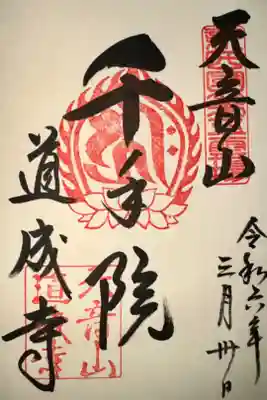 天音山
千手院
道成寺
令和六年
三月卅日
天音山
道成寺